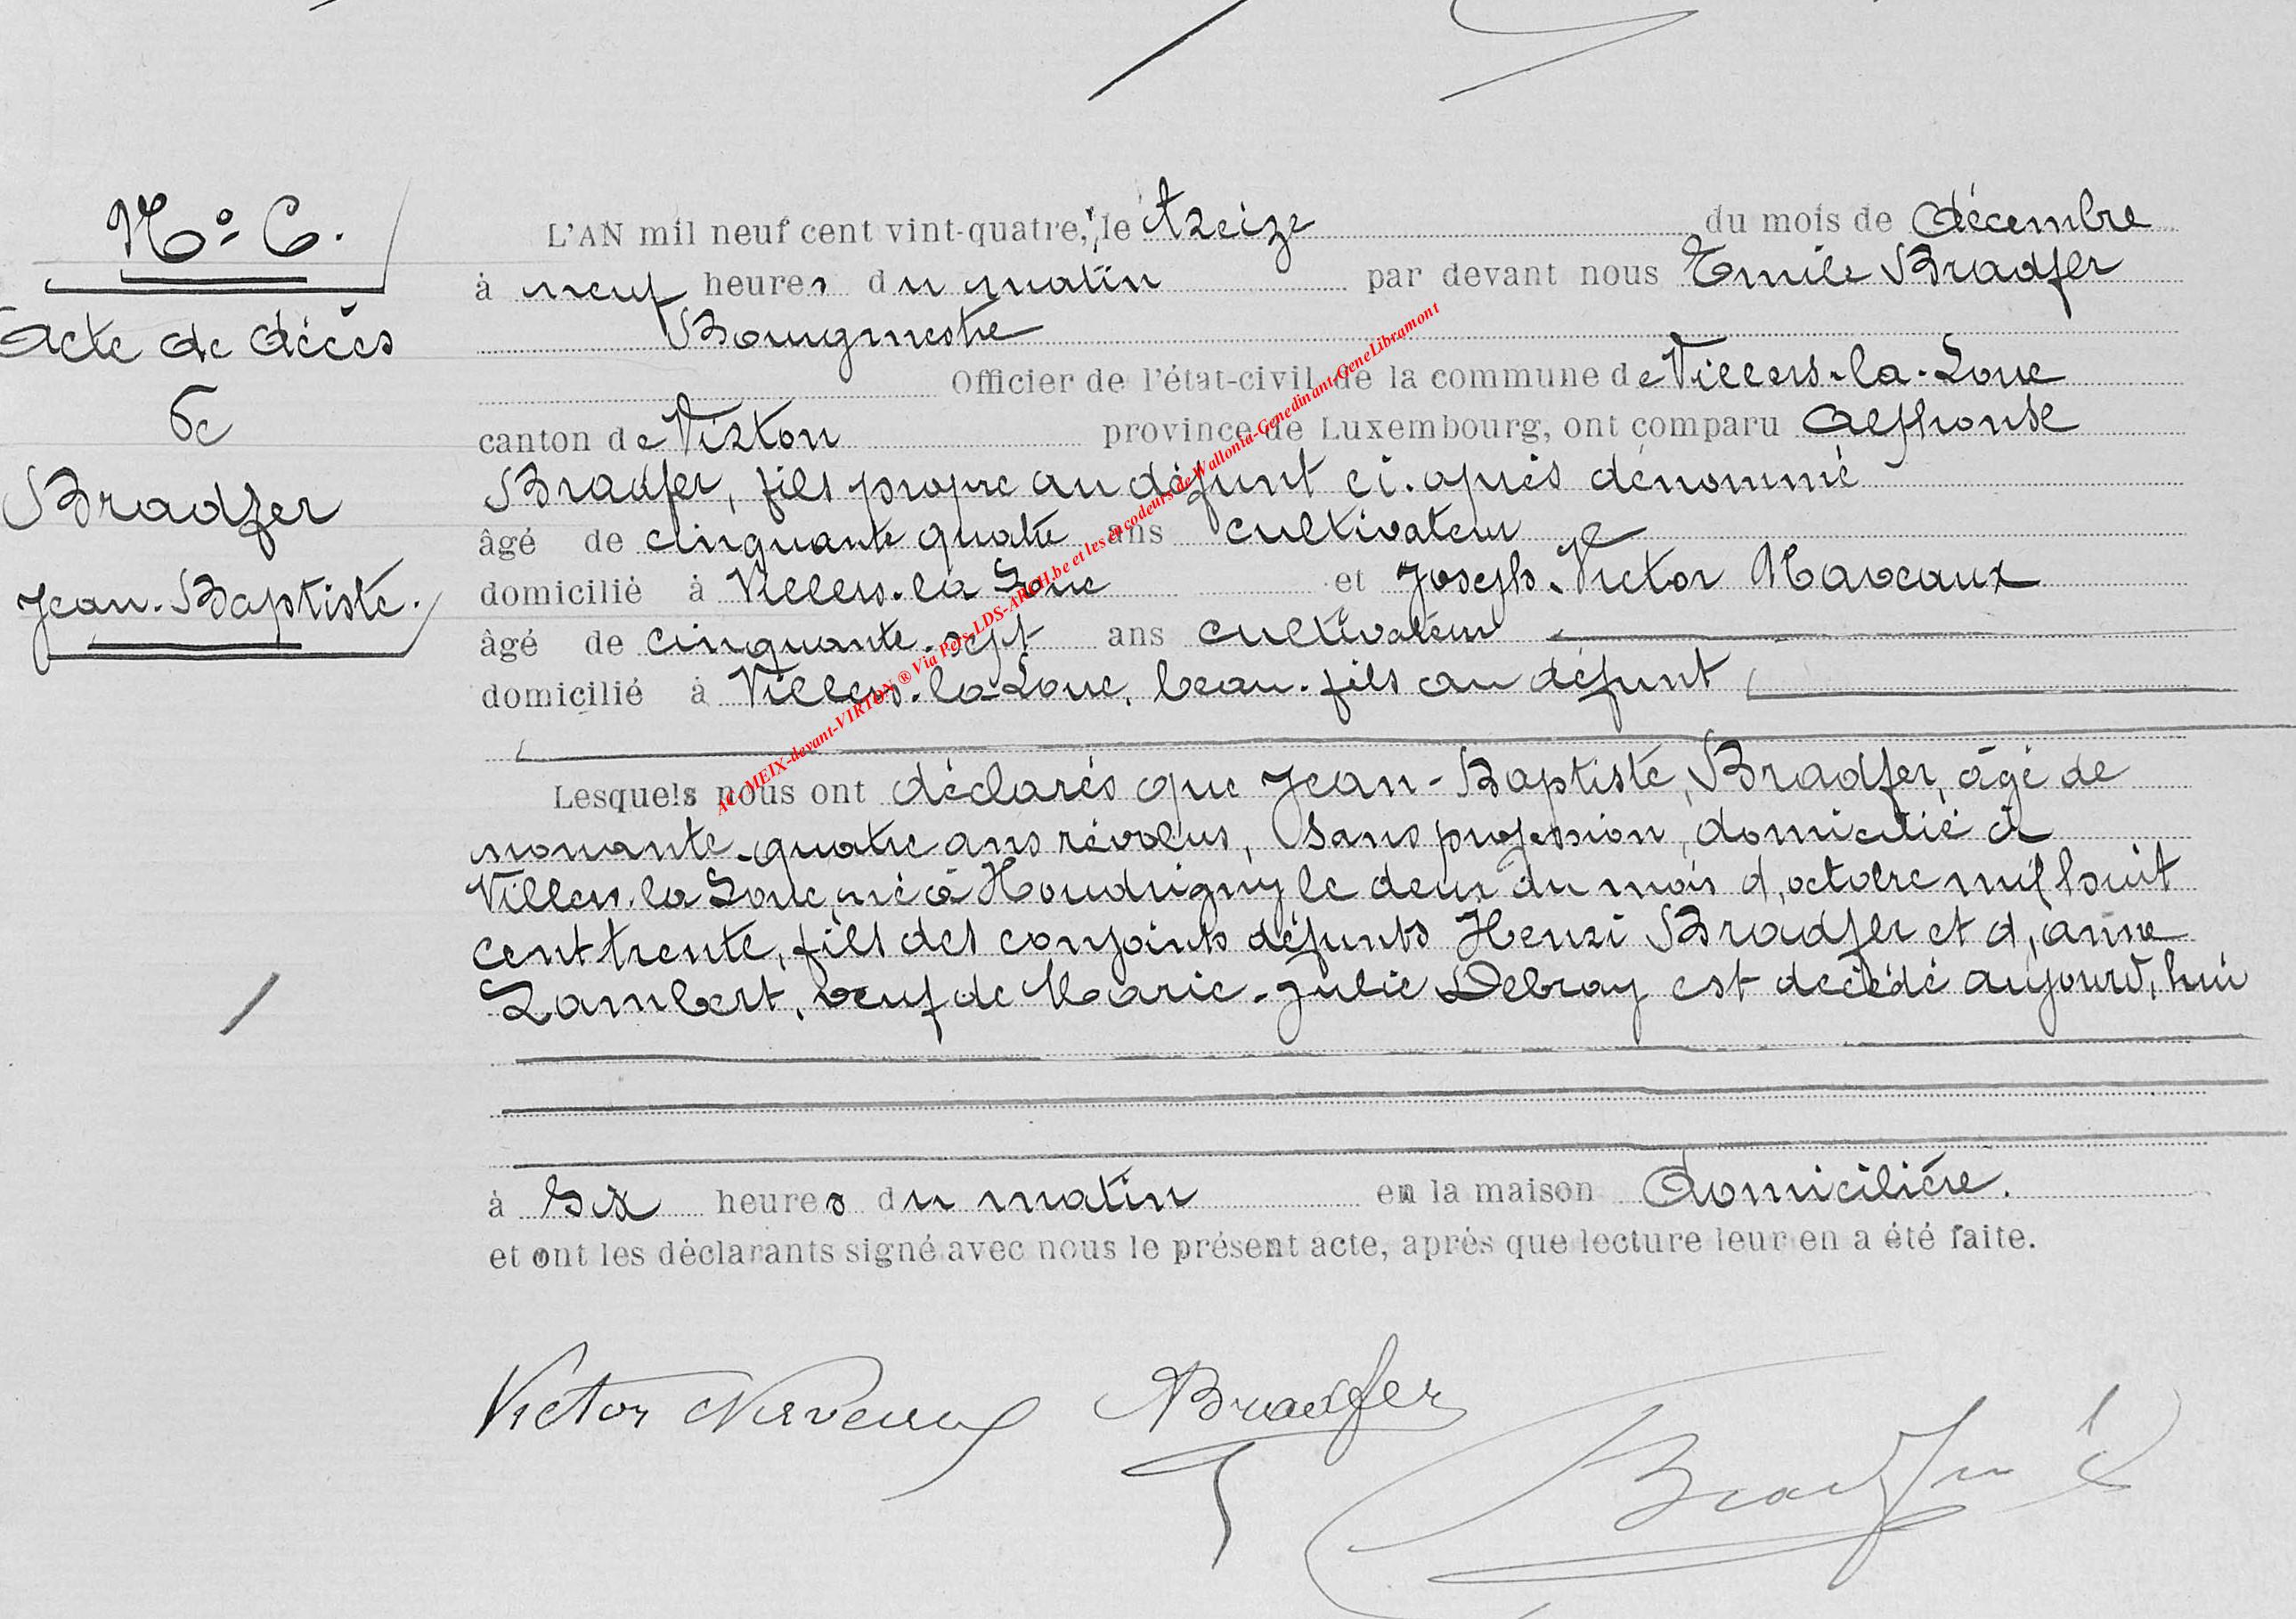 N° 6.
Acte de décès
de
Bradfer
Jean-Baptiste.
L'AN mil neuf cent vint-quatre, le treize du mois de décembre
à neuf heures du matin par devant nous Emile Bradfer
Bourgmestre
Officier de l'état-civil de la commune de Villers-la-Loue
canton de Virton province de Luxembourg, ont comparu Alphonse
Bradfer, fils propre au défunt ci-après dénommé
âgé de cinquante quatre ans cultivateur
domicilié à Villers-la Loue et Joseph-Victor Naveaux
âgé de cinquante-sept ans cultivateur
domicilié à Villers-la-Loue, beau-fils au défunt
Lesquels nous ont déclarés que Jean-Baptiste, Bradfer, âgé de
nonante-quatre ans révolus, sans profession, domicilié à
Villers-la Loue, né à Houdrigny le deux du mois d'octobre mil huit
cent trente, fils des conjoints défunts Henri Bradfer et d'anne
Lambert, veuf de Marie-Julie Debray est décédé aujourd'hui
à six heures du matin en la maison domicilière.
et ont les déclarants signé avec nous le présent acte, après que lecture leur en a été faite.
Victor Naveaux ABradfer Bradfer E
Ac-MEIX-devant-VIRTON ® Via Pers-LDS-ARCH.be et les encodeurs de Wallonia-Genedinant-GeneLibramont